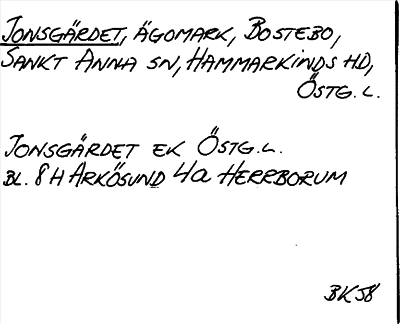 JONSGÄRDET, ÄGOMARK, BOSTEBO,
SANKT ANNA SN, HAMMARKINDS HD,
ÖSTG. L.
JONSGÄRDET EK ÖSTG. L.
BL. 8 H ARKÖSUND 4a HERRBORUM
BK58